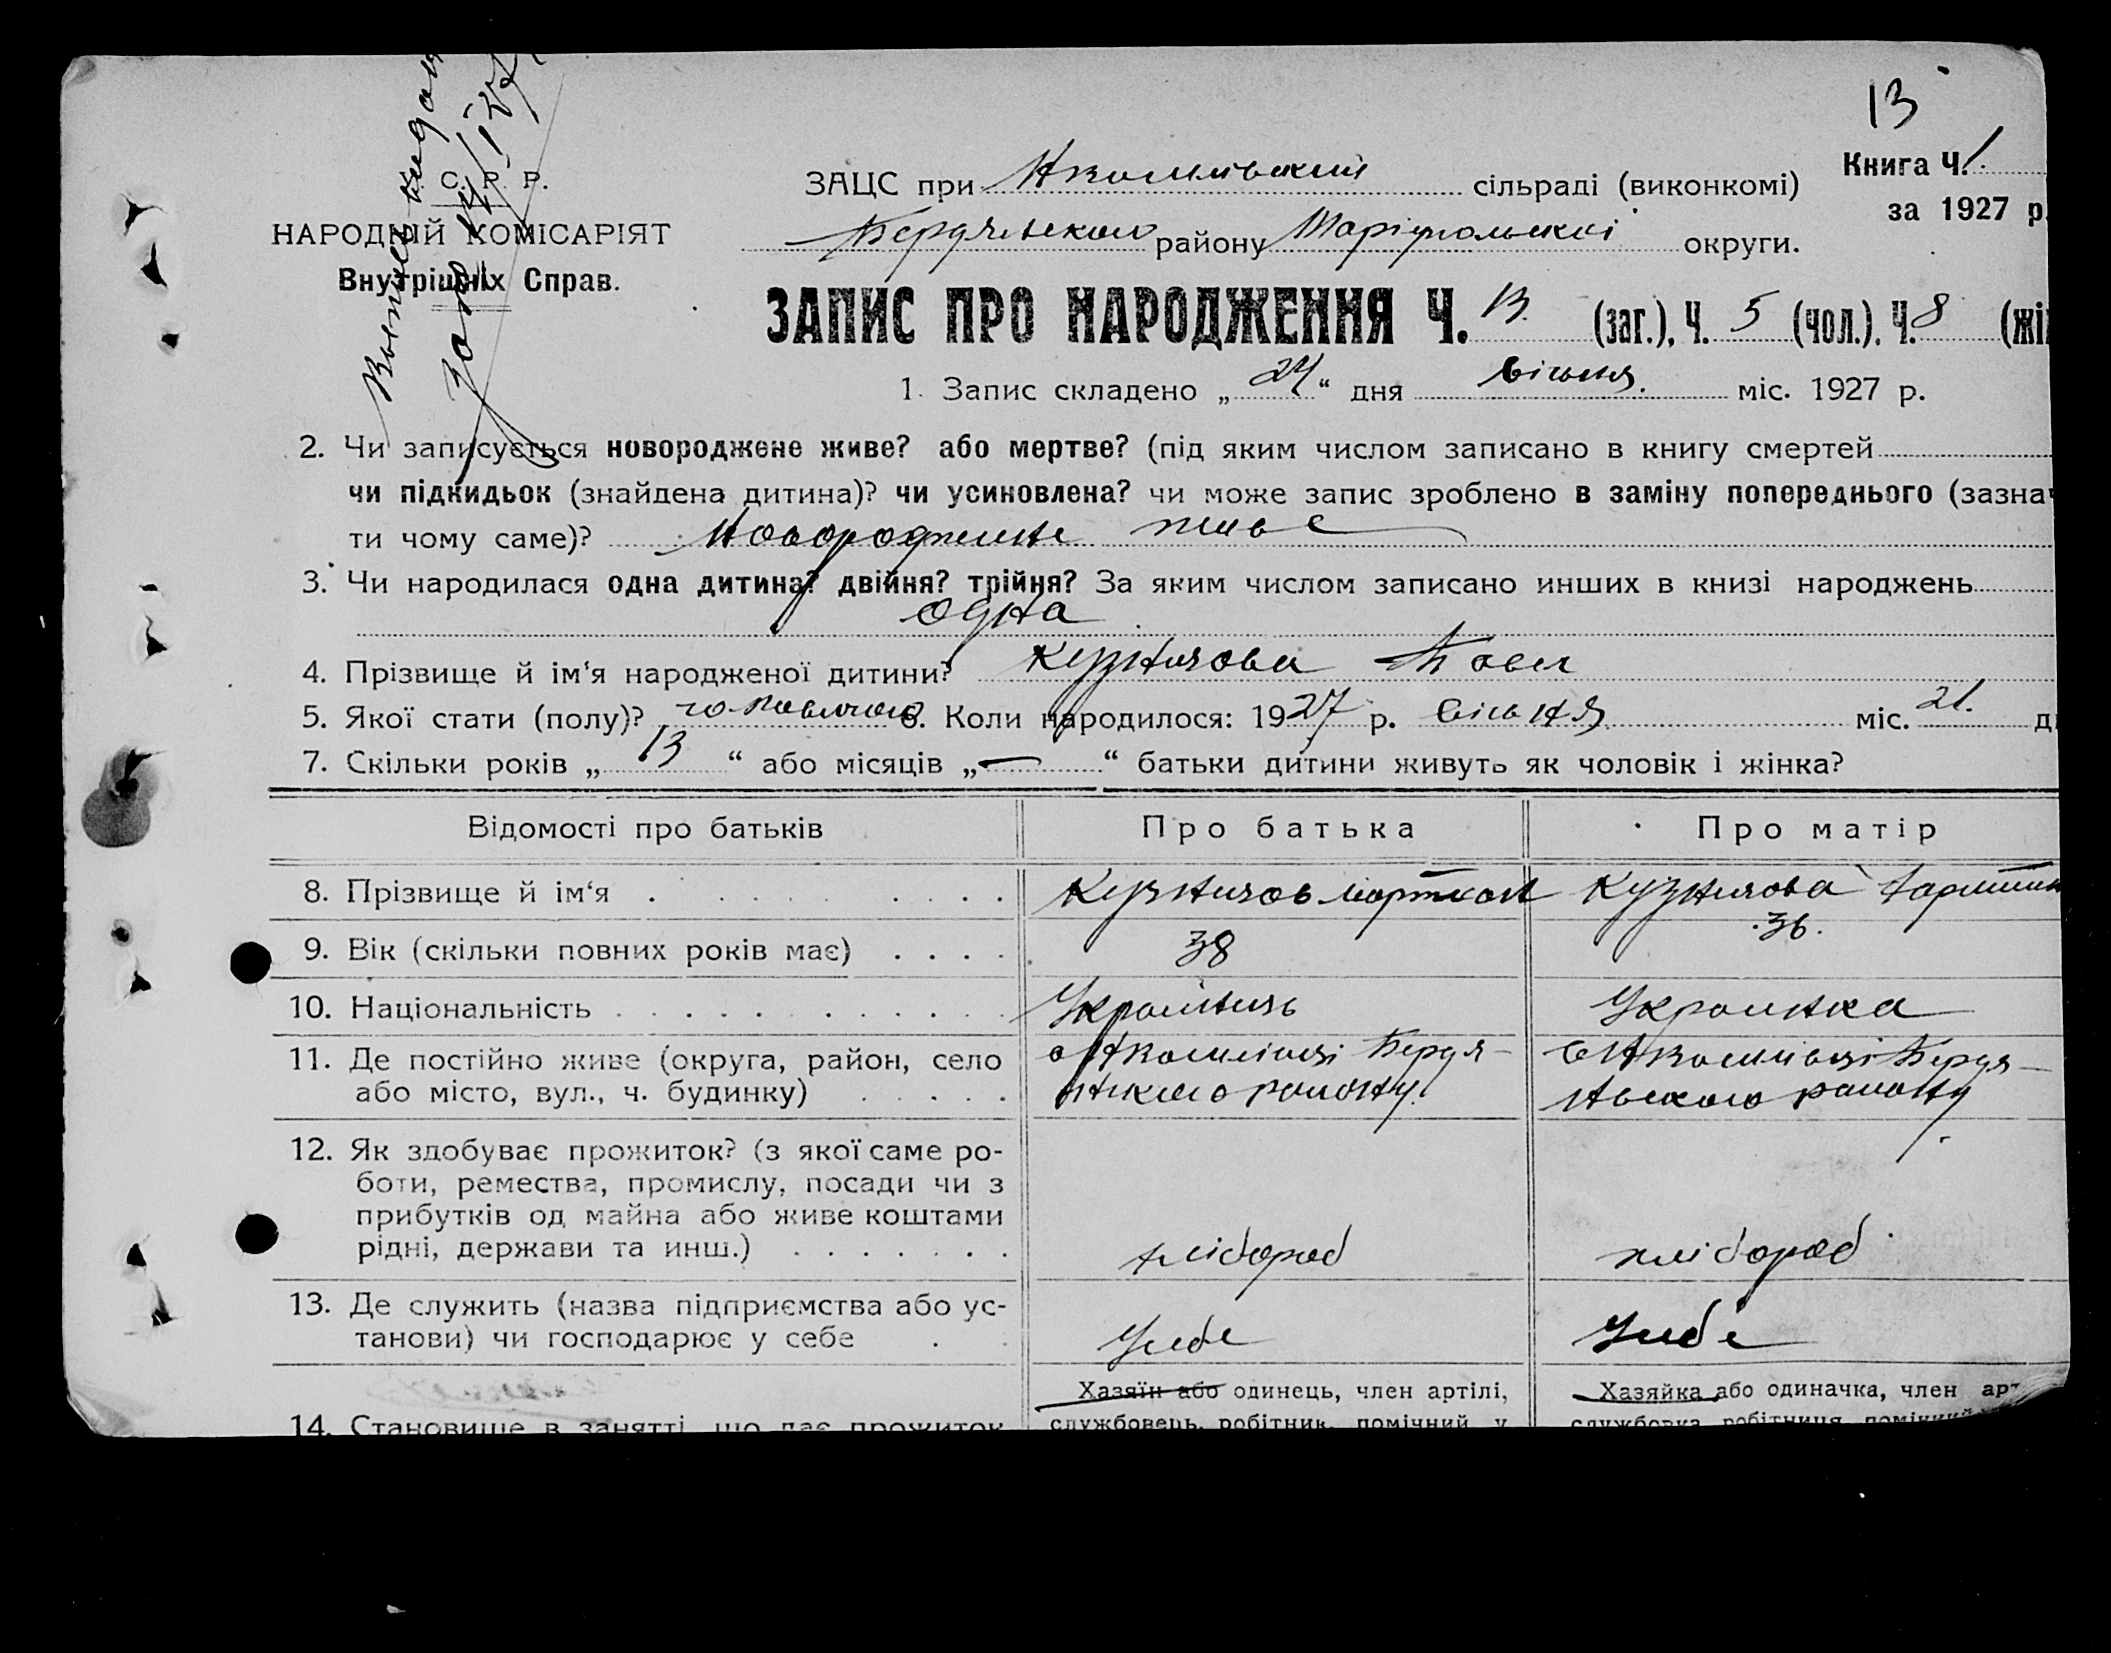 13
Книга Ч. 1.
за 1927 р.
С. Р. Р.
НАРОДНІЙ КОМІСАРІЯТ
Внутрішніх Справ.
ЗАЦС при сільраді (виконкомі)
Бердянського району Маріупольскої округи.
ЗАПИС ПРО НАРОДЖЕННЯ Ч. 13. (заг.), Ч. 5 (чол.). Ч. 8 (жі
1. Запис складено „ 24 “ дня січня. міс. 1927 р.
2. Чи записується новороджене живе? або мертве? (під яким числом записано в книгу смертей
чи підкидьок (знайдена дитина)? чи усиновлена? чи може запис зроблено в заміну попереднього (зазнач
ти чому саме)? Новороджене живе
3. Чи народилася одна дитина? двійня? трійня? За яким числом записано инших в книзі народжень
одна
4. Прізвище й ім‘я народженої дитини?
5. Якої стати (полу)? 6. Коли народилося: 1927 р. січня міс. 21. д
7. Скільки років „ 13 “ або місяців „ — “ батьки дитини живуть як чоловік і жінка?
Відомості про батьків Про батька Про матір
8. Прізвище й ім‘я
9. Вік (скільки повних років має) 38 36.
10. Національність Українець Українка
11. Де постійно живе (округа, район, село Бердя- Бердя-
або місто, вул., ч. будинку) нського району нського району
12. Як здобуває прожиток? (з якої саме ро-
боти, ремества, промислу, посади чи з
прибутків од майна або живе коштами
рідні, держави та инш.) хлібороб хлібороб
13. Де служить (назва підприємства або ус-
танови) чи господарює у себе У себе У себе
Хазяїн або одинець, член артілі, Хазяйка або одиначка, член арт
14. Становище в занятті, що дає прожиток службовець, робітник, помічний у службовка, робітниця, помічний